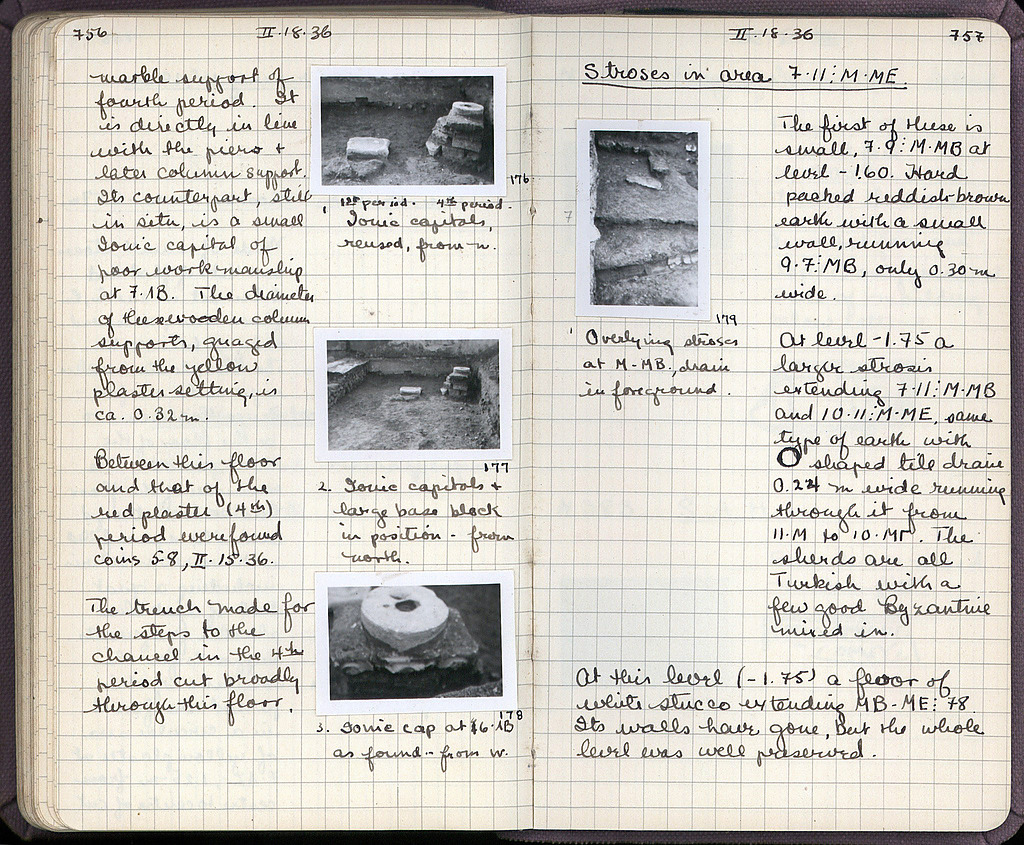 756
II.18.36
marble support of
fourth period. It
is directly in line
with the piers +
later column support.
Its counterpart, still
in situ, is a small
Ionic capital of
poor workmanship
at 7.ΙΒ. The diameter
of these wooden column
supports, guaged
from the yellow
plaster setting, is
ca. 0.32 m.
Between this floor
and that of the
red plaster (4th)
period were found
coins 5-8, II.15.36.
The trench made for
the steps to the
chancel in the 4th
period cut broadly
through this floor.
176
1st period. 4th period.
1. Ionic capitals,
reused, from n.
177
2. Ionic capitals +
large base block
in position - from
north.
178
3. Ionic cap at 6.ΛΒ
as found - from w.
II.18.36
757
Stroses in area 7-11:M-ME.
179
Overlying stroses
at M-MB, drain
in foreground.
The first of these is
small, 7-9:M-MB at
level -1.60. Hard
packed reddish brown
earth with a small
wall, running
9.7:MB, only 0.30 m
wide.
At level -1.75 a
larger strosis
extending 7-11:M-MB
and 10-11:M-ME, same
type of earth with
O shaped tile drain
0.24 m wide running
through it from
11.M to 10.MΓ. The
sherds are all
Turkish with a
few good Byzantine
mixed in.
At this level (-1.75) a floor of
white stucco extending MB-ME:78.
Its walls have gone, but the whole
level was well preserved.